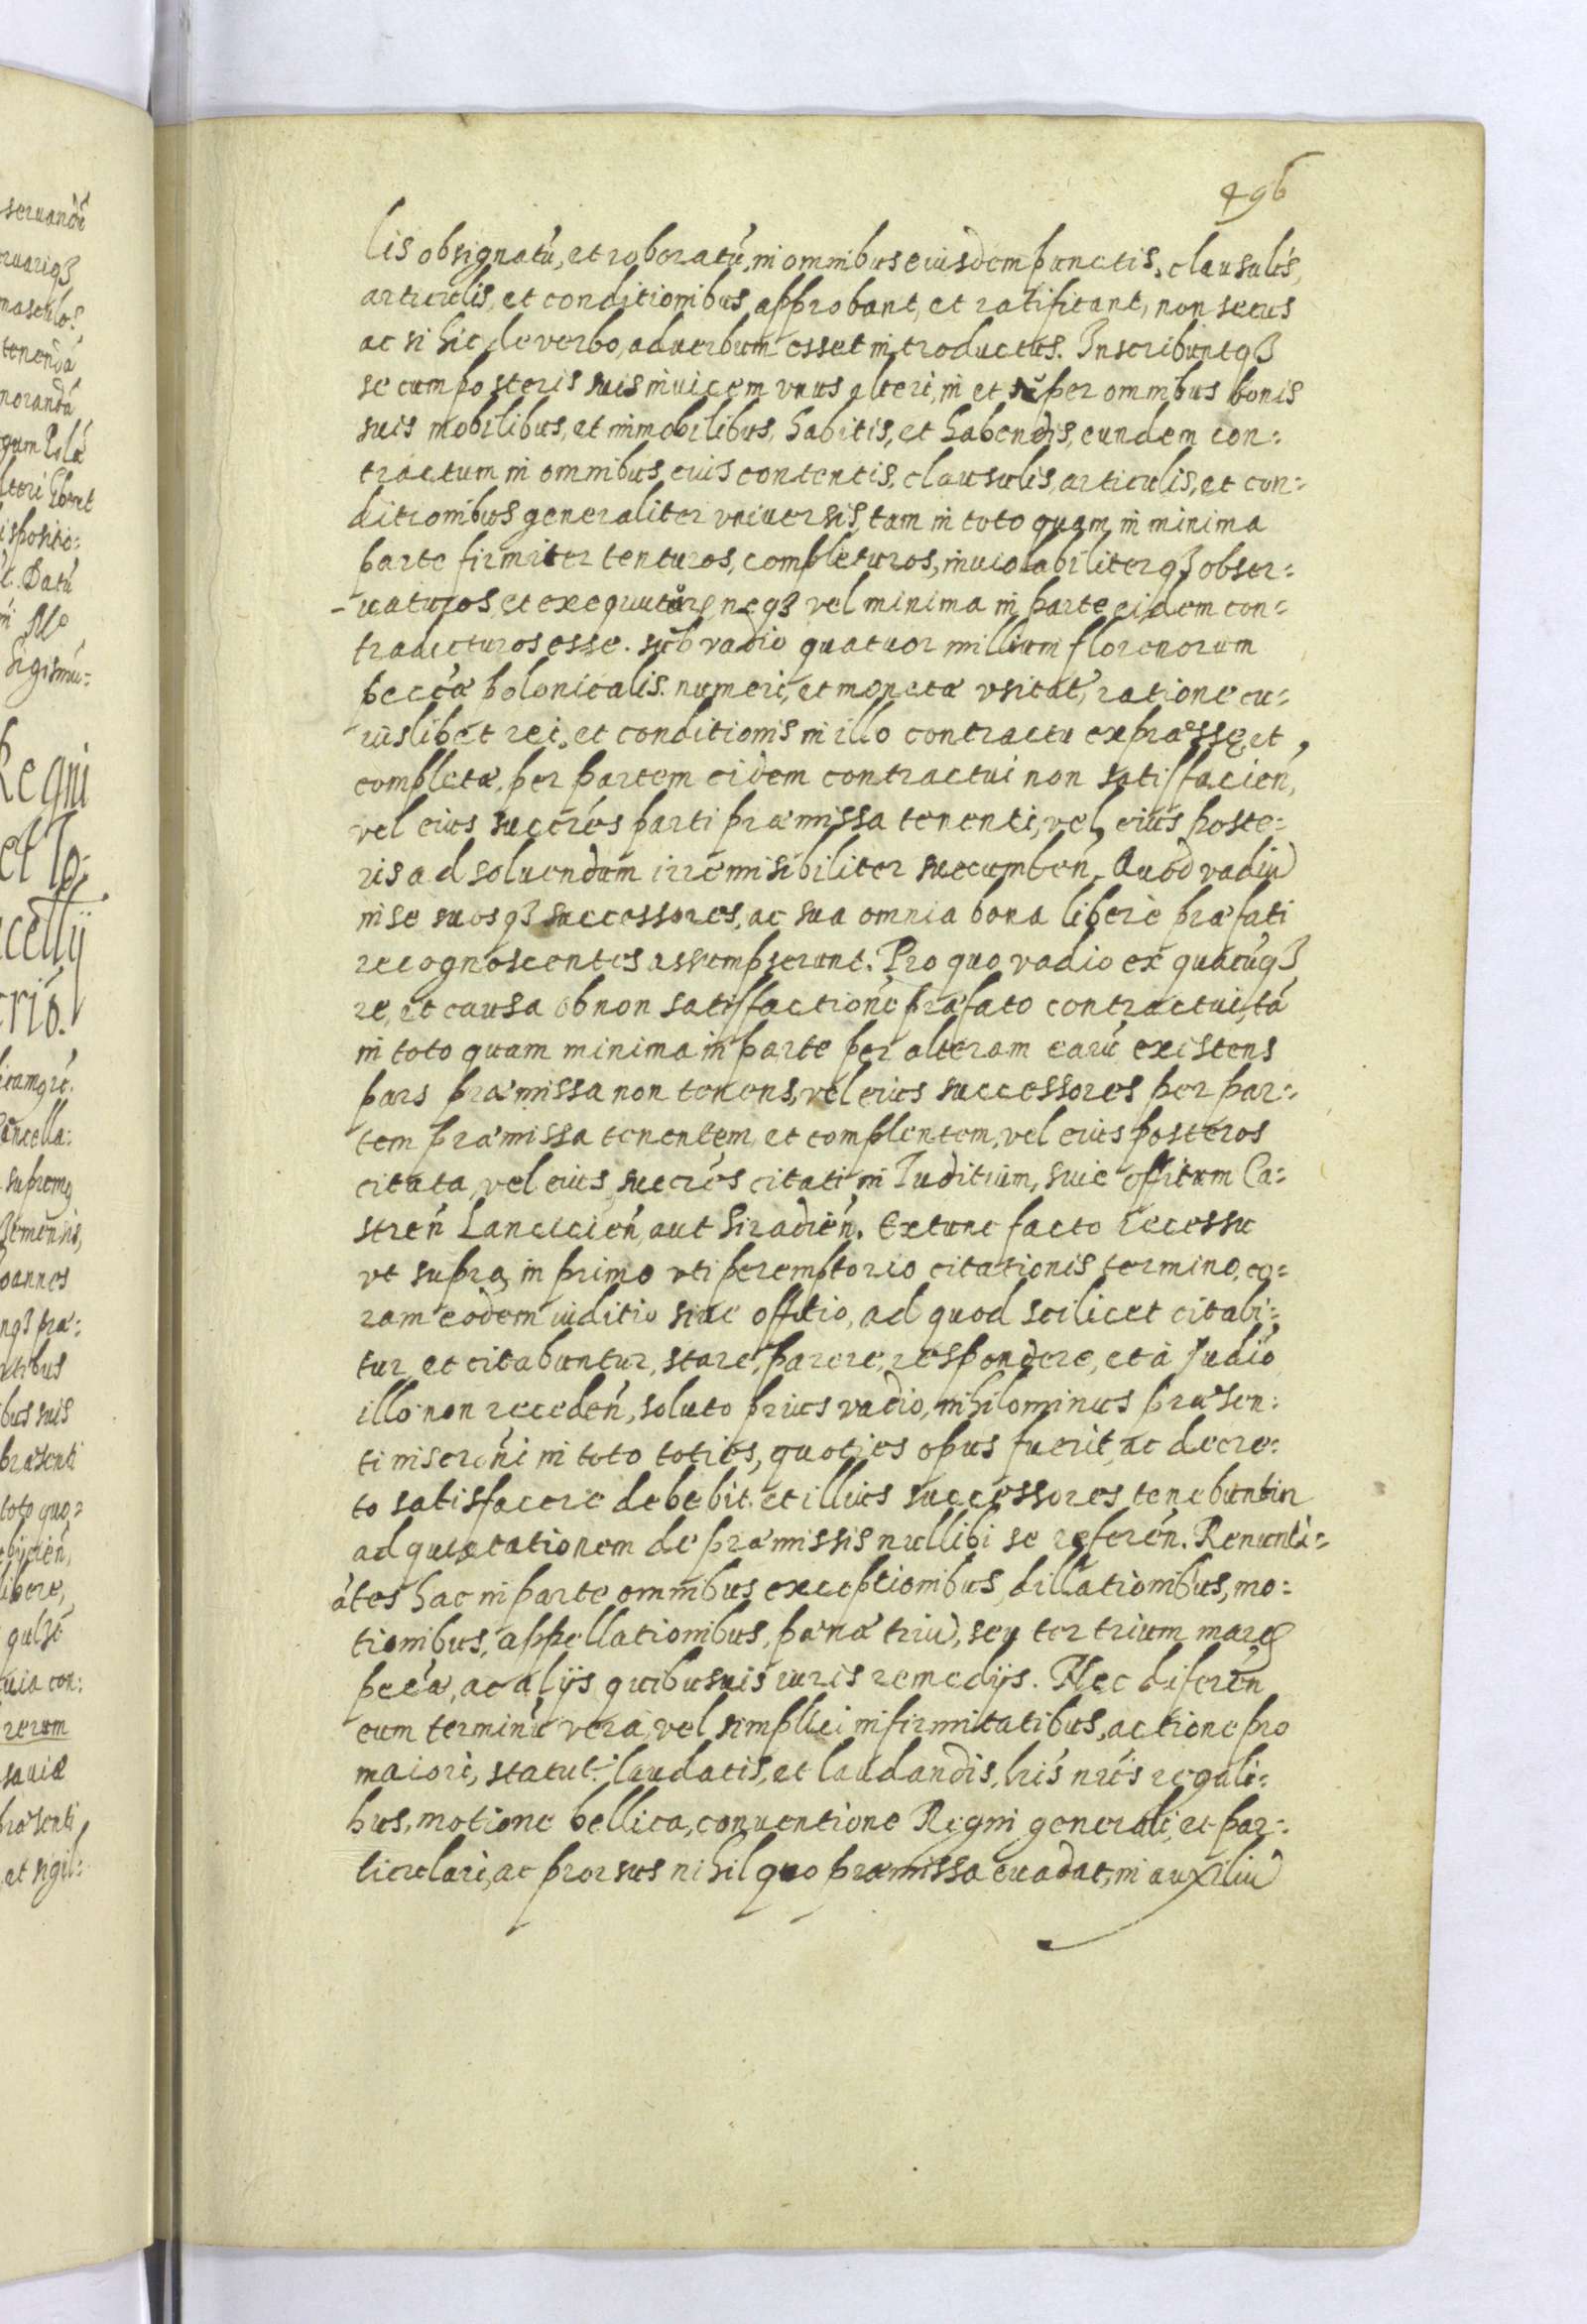 496
lis obsignatũ, et roboratũ, in omnibus eiusdem punctis, clausulis,
articulis, et conditionibus approbant, et ratificant, non secus
ac si hic de verbo, ad verbum esset introductus. Inscribuntq3
se cum posteris suis invicem vnus alteri, in et super omnibus bonis
suis mobilibus, et immobilibus, habitis, et habendis, eundem con:
tractum in omnibus eius contentis, clausulis, articulis, et con:
ditionibus generaliter vniversis, tam in toto quam in minima
parte firmiter tenturos, completuros, inuiolabiliterq3 obser:
-uaturos, et exequuturos, neq3 vel minima in parte eidem con:
tradicturos esse. sub vadio quatuor millium florenorum
peccæ polonicalis. numeri, et monetæ vsitat, ratione cu:
iuslibet rei, et conditionis in illo contractu expræssę, et
completæ, per partem eidem contractui non satisfacień,
vel eius succrés parti præmissa tenenti, vel eius poste:
ris ad soluendum irremisibiliter succumbeń. Quod vadiũ
in se suosq3 successores, ac sua omnia bona libere præfati
recognoscentes assumpserunt. Pro quo vadio ex quacũq3
re, et causa ob non satisfactionẽ præfato contractui, tã
in toto quam minima in parte per alteram earũ existens
pars præmissa non tenens, vel eius successores per par:
tem præmissa tenentem, et complentem, vel eius posteros
citata, vel eius succrés citati in Iuditium, siue offitium Ca:
streń Lancicień, aut Siradień. Extunc facto recessu
vt supra, in primo vti peremptorio citationis termino, co:
ram eodem iuditio siue offitio, ad quod scilicet citabi:
tur, et citabuntur, stare, parere, respondere, et à Judió
illo non recedeń, soluto prius vadio, nihilominus præsen:
ti inscrõni in toto toties, quoties opus fuerit, ac decre:
to satisfacere debebit, et illius successores tenebuntur
ad quietationem de præmissis nullibi se refereń. Renunti:
ātes hac in parte omnibus exceptionibus, dillationibus, mo:
tionibus, appellationibus, pænæ triũ, seu ter trium marc
peccæ, ac alijs quibusuis iuris remedijs. Nec difereń
eum terminũ vera, vel simplici infirmitatibus, actione pro
maiori, statut. laudatis, et laudandis, lris nrís regali:
bus, motione bellica, conuentione Regni generali, et par:
ticulari, ac prorsus nihil quo præmissa euadat, in auxiliũ